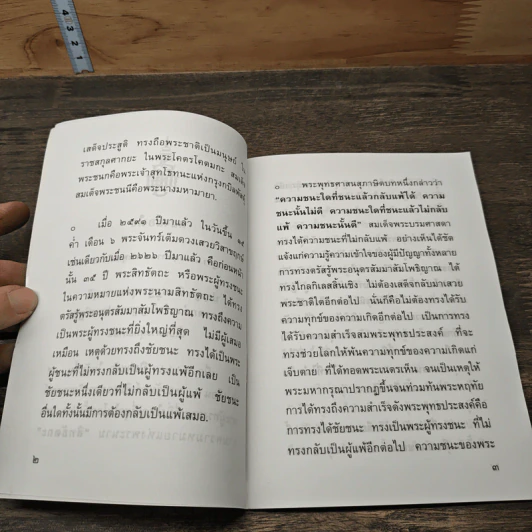 เสด็จประสูติ ทรงถือพระชาติเป็นมนุษย์ ใน
ราชสกุลศากยะ ในพระโคตรโคตมกะ สมเด็จ
พระชนกคือพระเจ้าสุทโธทนะแห่งกรุงกบิลพัสดุ์
สมเด็จพระชนนีคือพระนางมหามายา.
๐ เมื่อ ๒๕๙๑ ปีมาแล้ว ในวันขึ้น ๑๕
ค่ำ เดือน ๖ พระจันทร์เต็มดวงเสวยวิสาขฤกษ์
เช่นเดียวกับเมื่อ ๒๖๒๖ ปีมาแล้ว คือก่อนหน้า
นั้น ๓๕ ปี พระสิทธัตถะ หรือพระผู้ทรงชนะ
ในความหมายแห่งพระนามสิทธัตถะ ได้ทรง
ตรัสรู้พระอนุตรสัมมาสัมโพธิญาณ ทรงถึงความ
เป็นพระผู้ทรงชนะที่ยิ่งใหญ่ที่สุด ไม่มีผู้เสมอ
เหมือน เหตุด้วยทรงถึงชัยชนะ ทรงได้เป็นพระ
ผู้ชนะที่ไม่ทรงกลับเป็นผู้ทรงแพ้อีกเลย เป็น
ชัยชนะหนึ่งเดียวที่ไม่กลับเป็นผู้แพ้ ชัยชนะ
อื่นใดทั้งนั้นมีการต้องกลับเป็นแพ้เสมอ.
๒
๐ พระพุทธศาสนสุภาษิตบทหนึ่งกล่าวว่า
“ความชนะใดที่ชนะแล้วกลับแพ้ได้ ความ
ชนะนั้นไม่ดี ความชนะใดที่ชนะแล้วไม่กลับ
แพ้ ความชนะนั้นดี” สมเด็จพระบรมศาสดา
ทรงได้ความชนะที่ไม่กลับแพ้ อย่างเห็นได้ชัด
แจ้งแก่ความรู้ความเข้าใจของผู้มีปัญญาทั้งหลาย
การทรงตรัสรู้พระอนุตรสัมมาสัมโพธิญาณ ได้
ทรงไกลกิเลสสิ้นเชิง ไม่ต้องเสด็จกลับมาเสวย
พระชาติใดอีกต่อไป นั่นก็คือไม่ต้องทรงได้รับ
ความทุกข์ของความเกิดอีกต่อไป เป็นการทรง
ได้รับความสำเร็จสมพระพุทธประสงค์ ที่จะ
ทรงช่วยโลกให้พ้นความทุกข์ของความเกิดแก่
เจ็บตาย ที่ได้ทอดพระเนตรเห็น จนเป็นเหตุให้
พระมหากรุณาปรากฏขึ้นจนท่วมท้นพระหฤทัย
การได้ทรงถึงความสำเร็จดังพระพุทธประสงค์คือ
การทรงได้ชัยชนะ ทรงเป็นพระผู้ทรงชนะ ที่ไม่
ทรงกลับเป็นผู้แพ้อีกต่อไป ความชนะของพระ
๓
4
3
2
1